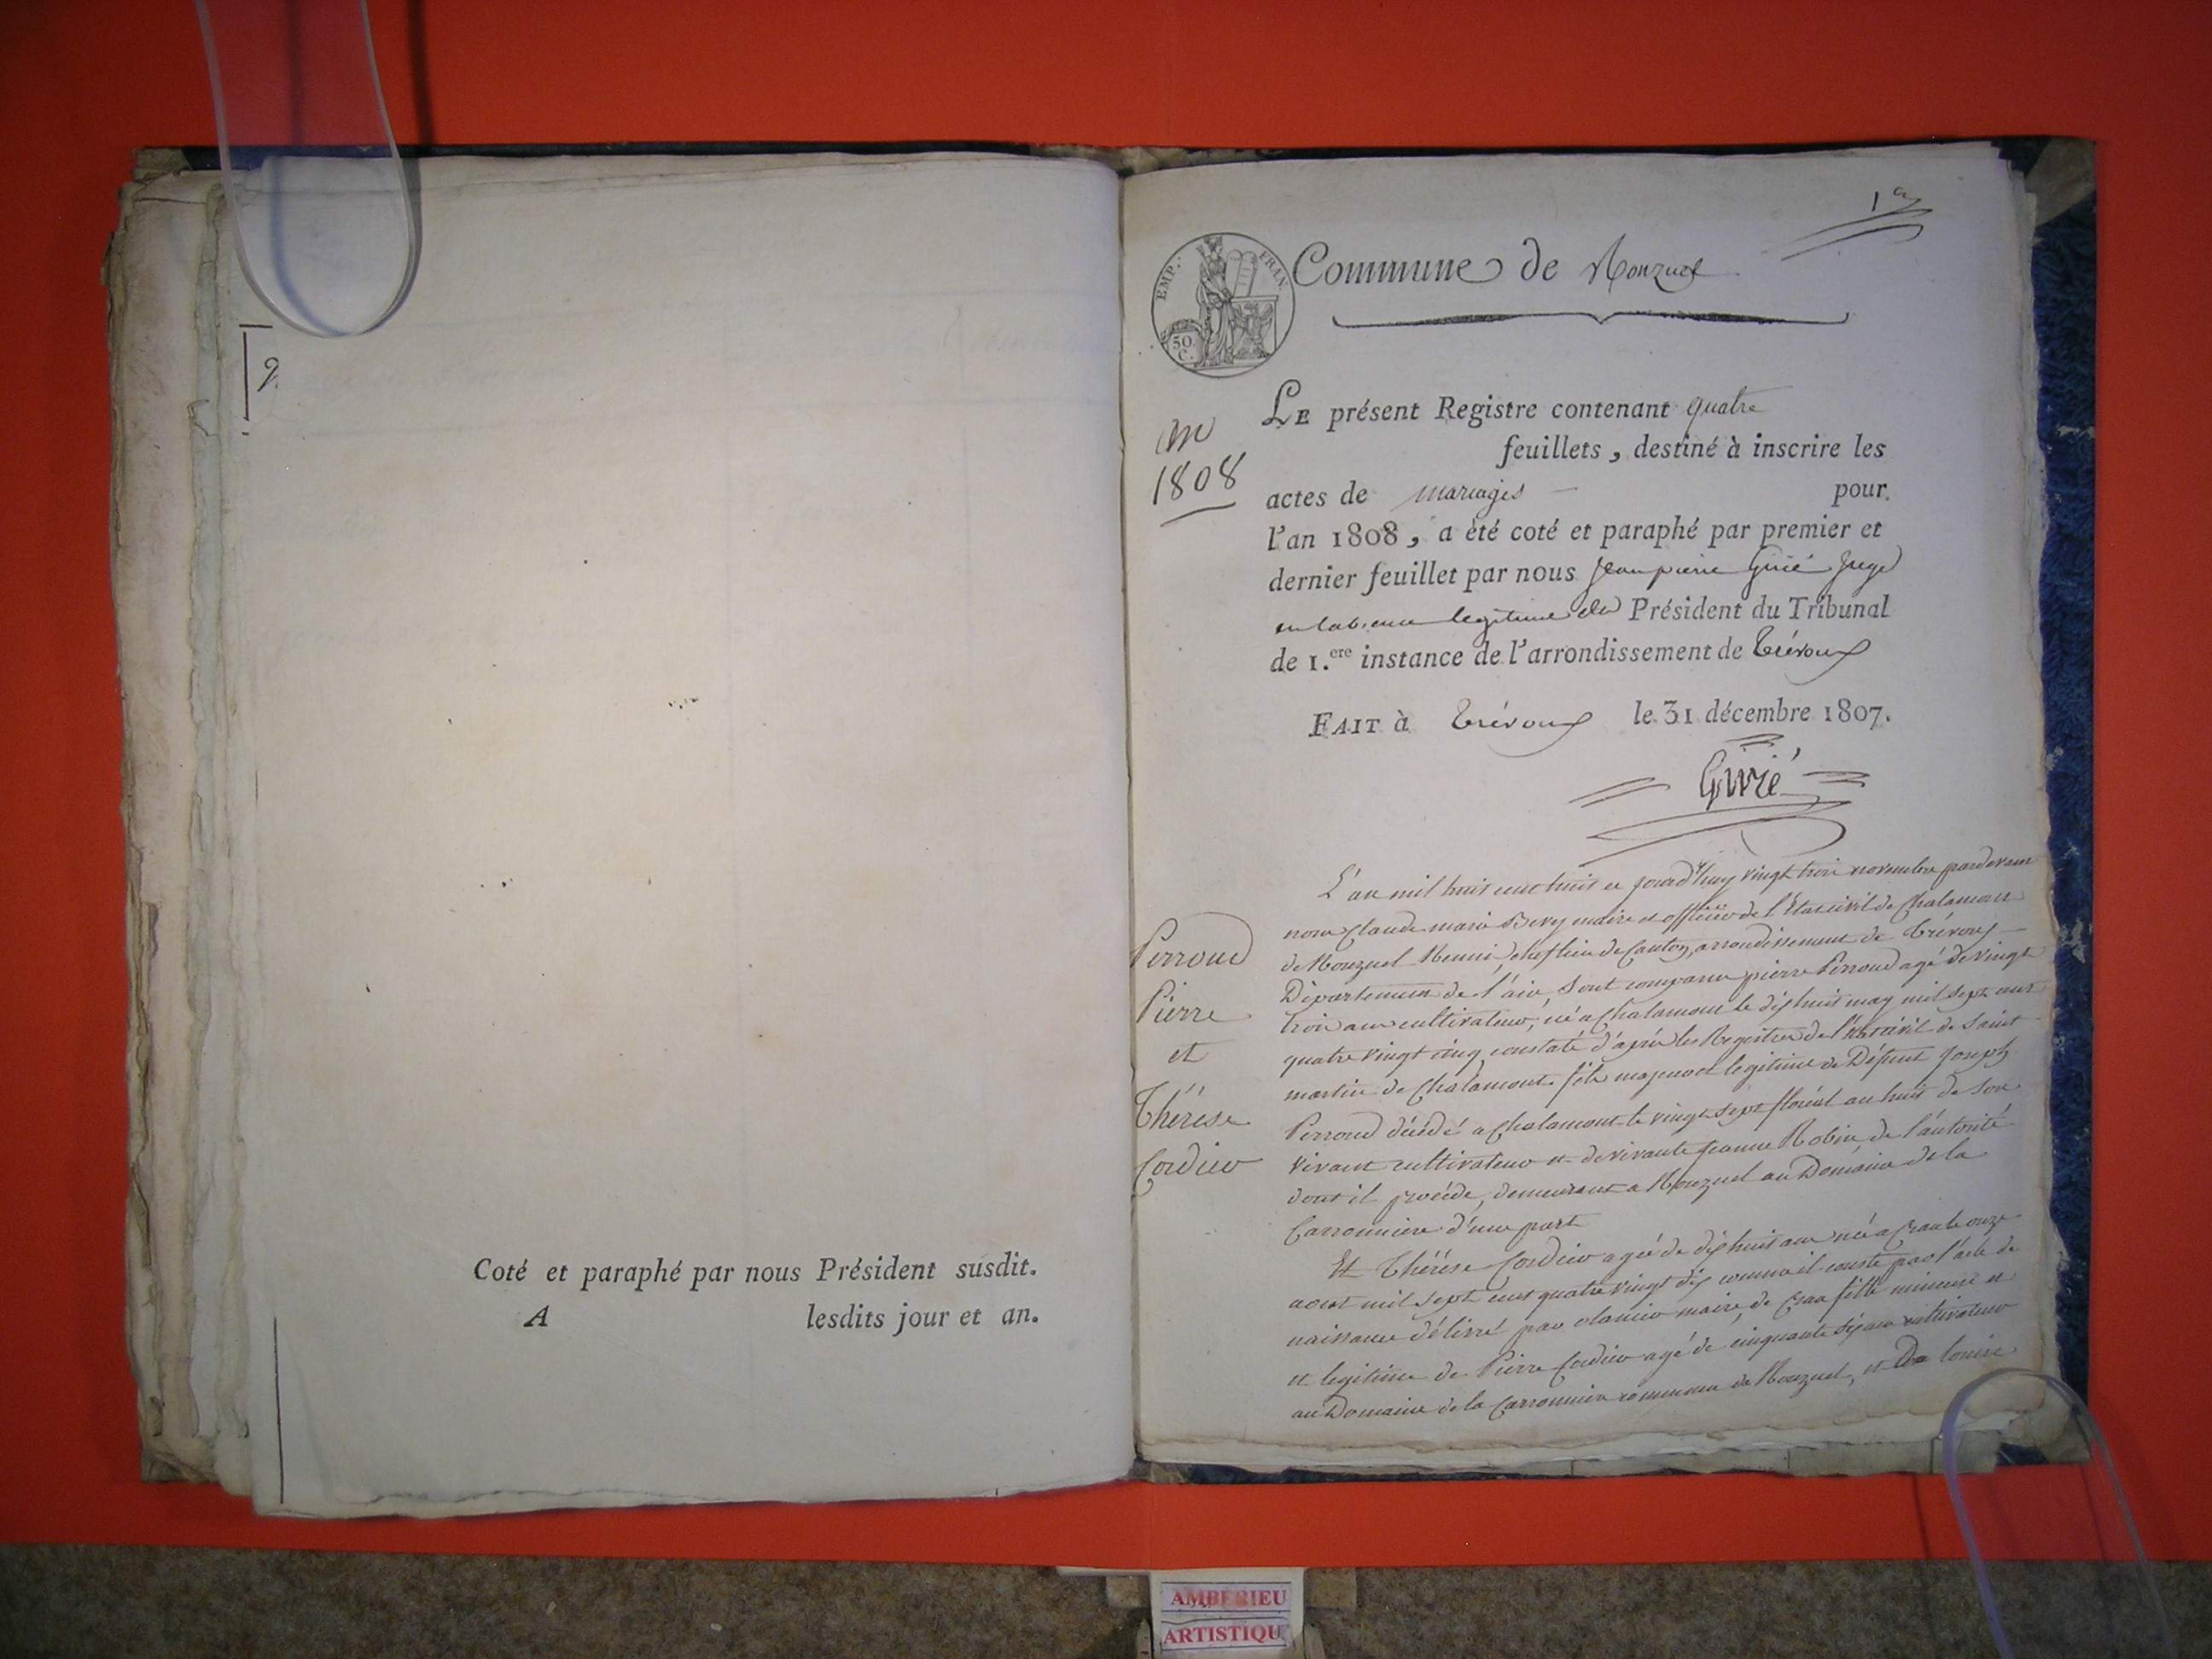 9.
Coté et paraphé par nous Président susdit.
A lesdits jour et an.
1er
EMP. FRAN.
50.
C.
Commune de Ronzuel
an
1808
LE présent Registre contenant quatre
feuillets, destiné à inscrire les
actes de mariages pour
l'an 1808, a été coté et paraphé par premier et
dernier feuillet par nous Jean pierre Girié Juge
en l'absence legitime du Président du Tribunal
de 1.ere instance de l'arrondissement de Trévoux
FAIT à Trévoux le 31 décembre 1807.
Girié
Perroud
Pierre
et
Thérèse
Cordier
L'an mil huit cent huit ce jourd'huy vingt trois novembre pardevant
nous Claude marie Bevy maire et officier de l'Etat civil de Chalamont
de Ronzuel Reunis, chef lieu de Canton, arrondissement de Trévoux
Département de l'ain, Sont comparu pierre Perroud agé de vingt
trois ans cultivateur, né a Chalamont le dix huit may mil sept cent
quatre vingt cinq constaté d'après les Registres de l'Etat civil de Saint
martin de Chalamont fils majeur et legitime de Défunt Joseph
Perroud décédé a Chalamont le vingt sept floréal an huit de son
vivant cultivateur et de vivante Jeanne Robin, de l'autorité
dont il procéde, demeurant a Ronzuel au Domaine de la
Carronniere d'une part
Et Thérèse Cordier agée de dix huit ans née a Cran le onze
aout mil sept cent quatre vingt dix comme il conste par l'acte de
naissance délivré par maire, de Cran fille mineure et
et legitime de Pierre Cordier agé de cinquante six ans cultivateur
au Domaine de la Carronniere commune de Ronzuel, et De louise
AMBERIEU
ARTISTIQU